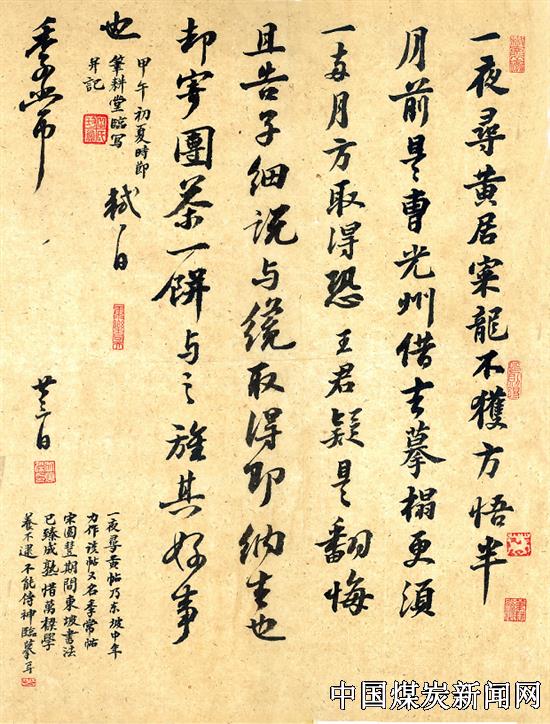 一夜尋黄居寀龍不獲方悟半
月前是曹光州借去摹搨更須
一兩月方取得恐王君疑是翻悔
且告子細説与纔取得即納去也
却寄團茶一餅与之旌其好事
也
軾白
甲午初夏時即
筆耕堂臨写
并記
季常
廿三日
一夜尋黄帖乃东坡中年
力作该帖又名季常帖
宋豐期間東坡書法
已臻成熟惜萬學
養不逮不能傳神臨摹耳
中国煤炭新闻网